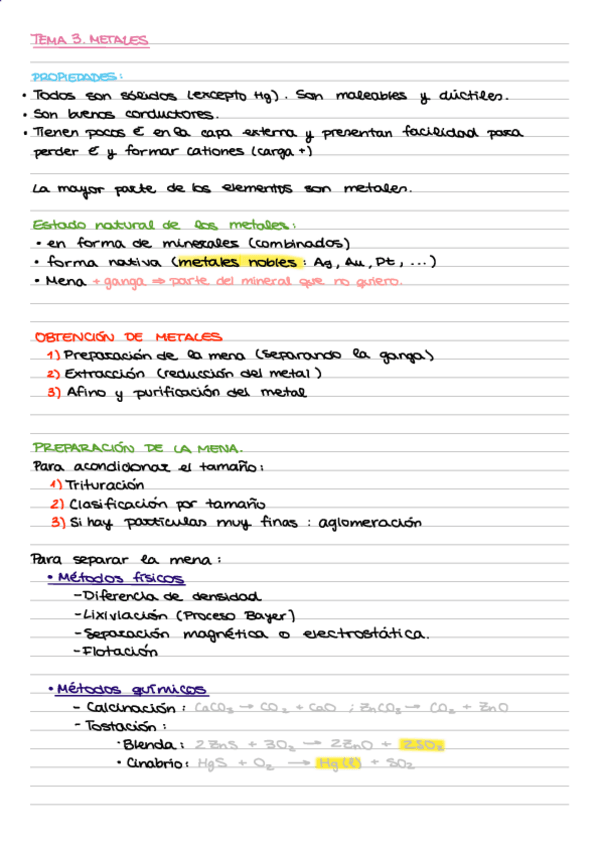 TEMA 3. METALES
PROPIEDADES:
• Todos son sólidos (excepto Hg). Son maleables y dúctiles.
• Son buenos conductores.
• Tienen pocos e⁻ en la capa externa y presentan facilidad para
perder e⁻ y formar cationes (carga +)
La mayor parte de los elementos son metales.
Estado natural de los metales:
• en forma de minerales (combinados)
• forma nativa (metales nobles: Ag, Au, Pt, ...)
• Mena + ganga ⇒ parte del mineral que no quiero.
OBTENCIÓN DE METALES
1) Preparación de la mena (separando la ganga)
2) Extracción (reducción del metal)
3) Afino y purificación del metal
PREPARACIÓN DE LA MENA.
Para acondicionar el tamaño:
1) Trituración
2) Clasificación por tamaño
3) Si hay partículas muy finas: aglomeración
Para separar la mena:
• Métodos físicos
- Diferencia de densidad
- Lixiviación (Proceso Bayer)
- Separación magnética o electrostática.
- Flotación
• Métodos químicos
- Calcinación: CaCO₃ → CO₂ + CaO ; ZnCO₃ → CO₂ + ZnO
- Tostación:
• Blenda: 2ZnS + 3O₂ → 2ZnO + 2SO₂
• Cinabrio: HgS + O₂ → Hg(l) + SO₂